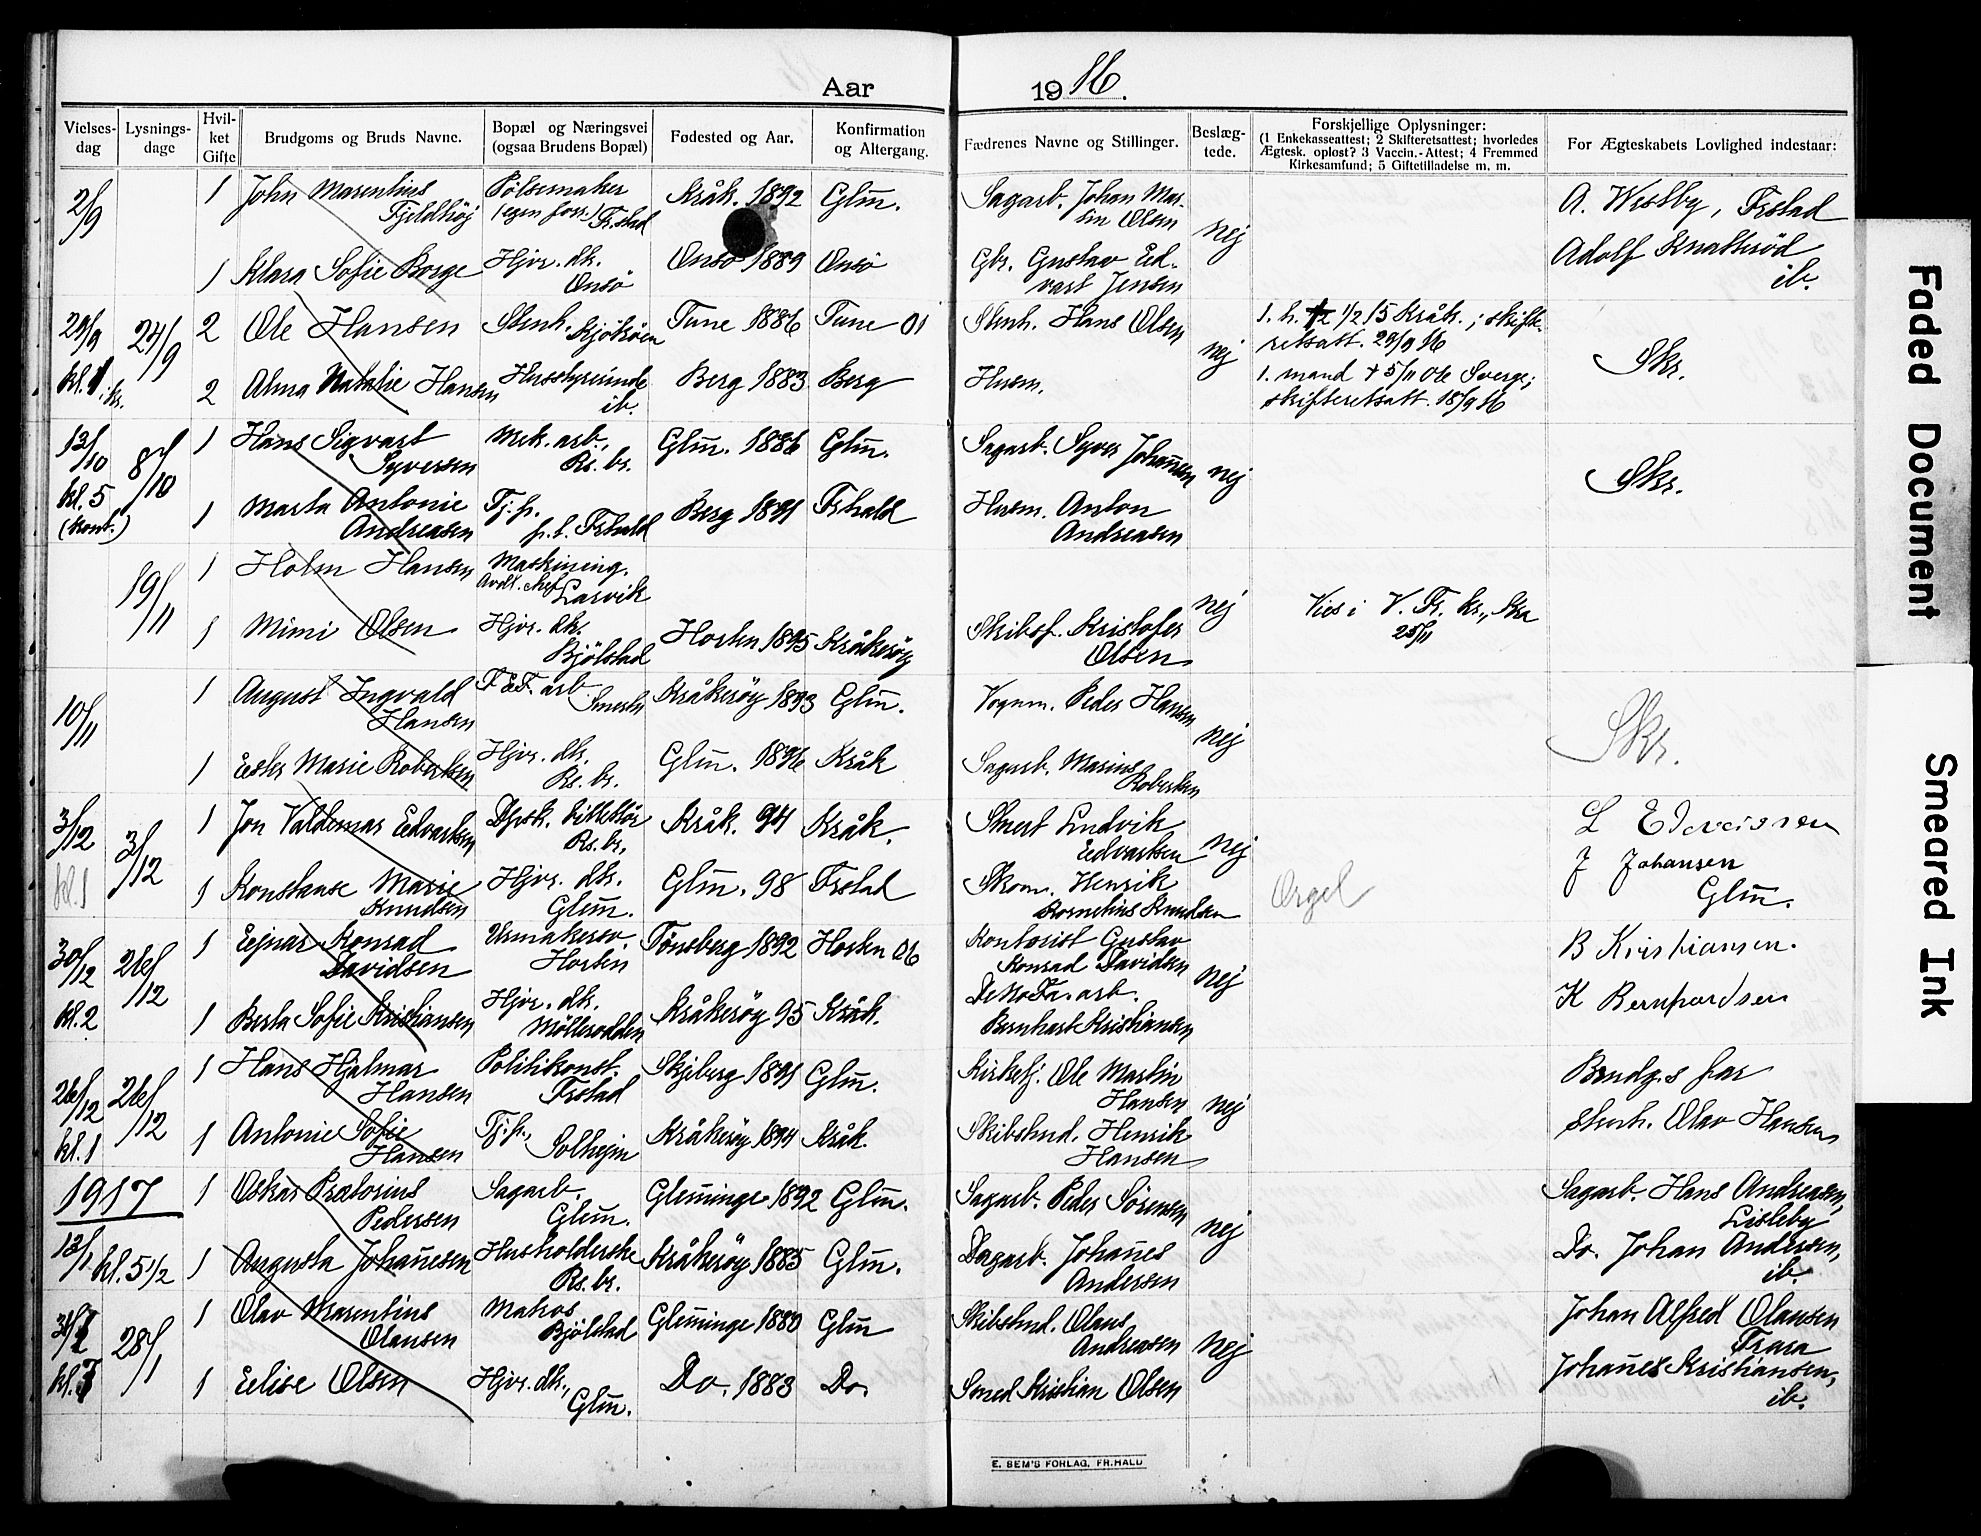 Aar 1916.
Vielses-dag
Lysnings-dage
Hvil-ket Gifte
Brudgoms og Bruds Navne.
Bopæl og Næringsvei (ogsaa Brudens Bopæl)
Fødested og Aar.
Konfirmation og Altergang.
Fædrenes Navne og Stillinger.
Beslæg-tede.
Forskjellige Oplysninger:
(1 Enkekasseattest; 2 Skifteretsattest; hvorledes
Ægtesk. opløst? 3 Vaccin.-Attest; 4 Fremmed
Kirkesamfund; 5 Giftetilladelse m. m.
For Ægteskabets Lovlighed indestaar:
2/9 1 John Marentius Fjeldhøj Pølsemaker (egen forr.) Fr.stad Kråk. 1892 Glm. Sagarb. Johan Mar- Olsen nej A. Westby, Frstad
1 Klara Sofie Borge Hjvr. dtr. Onsö Onsö 1889 Onsö Gbr. Gustav Ed- vart Jensen Adolf Knatterød ib.
29/9 24/9 2 Ole Hansen Stenh. Kjököen Tune 1886 Tune 01 Stenh. Hans Olsen nej 1. h. 1/2 15 Kråk.; skifte-
retsatt. 29/9 16 Skr.
kl. 2 Alma Natalie Hansen Husstyrende ib. Berg 1883 Berg Husm. 1. mand + 5/11 Ole Sverge;
skifteretsatt. 18/9 16
13/10 8/10 1 Hans Sigvart Syversen Mek. arb., Rs. br. Glm. 1886 Glm. Sagarb. Syver Johannsen nej Skr.
kl. 5 (kont.) 1 Marta Antonie Andreasen Tj.p. p.t. Frhald Berg 1891 Frhald Husm. Anton Andreasen
19/11 1 Holm Hansen Maskining. Avdl. chef Larvik nej Vies i V. Fr. kr.,
25/11
1 Mimi Olsen Hjvr. dtr. Bjölstad Horten 1895 Kråkeröy Skibsf. Kristofer Olsen
10/11 1 August Ingvald Hansen F. & F. arb. Kråkeröy 1893 Glm. Vognm. Peder Hansen nej Skr.
1 Ester Marie Robertsen Hjvr. dtr. Rs. br. Glm. 1896 Kråk Sagarb. Marius Robertsen
3/12 3/12 1 Jon Valdemar Edvartsen Rs. br. Kråk. 94 Kråk. Ludvik Edvartsen nej L Edvardsen
kl. 1 1 Konstanse Marie Knudsen Hjvr. dtr. Glem. Glm. 98 Frstad Skom. Henrik Kornelius Knudsen Orgel J Johansen Glm.
30/12 26/12 1 Ejnar Konrad Davidsen Urmakersv. Horten Tönsberg 1892 Horten 06 Kontorist Gustav Konrad Davidsen nej B Kristiansen.
kl. 2 1 Berta Sofie Kristiansen Hjvr. dtr. Möllerodden Kråkeröy 95 Kråk. arb. Bernhart Kristiansen K Bernhardsen
26/12 26/12 1 Hans Hjalmar Hansen Politikonst. Frstad Skjeberg 1891 Glm. Kirketj. Ole Martin Hansen nej Brudg.s far
kl. 1 1 Antonie Sofie Hansen Tj.p., Solhejm Kråkeröy 1894 Kråk. Skibstmd. Henrik Hansen Stenh. Olav Hansen
1917 1 Oskar Prætorius Pedersen Sagarb. Glem. Gleminge 1892 Glm. Sagarb. Peder Sörensen nej Sagarb. Hans Andreasen, Lisleby
13/1 kl. 5 1/2 1 Augusta Johanesen Husholderske Rs. br. Kråkeröy 1885 Glm. Dagarb. Johanes Andersen Do. Johan Andersen, ib.
28/1 1 Olav Marentius Olausen Matros Bjölstad Gleminge 1880 Glm Skibstmd. Olaus Andreasen nej Johan Alfred Olausen Trara
kl. 1 Elise Olsen Hjvr. dtr., Glm. Do. 1883 Do. Smed Kristian Olsen Johanes Kristiansen, ib.
E. SEM'S FORLAG, FR.HALD
Faded Document
Smeared Ink